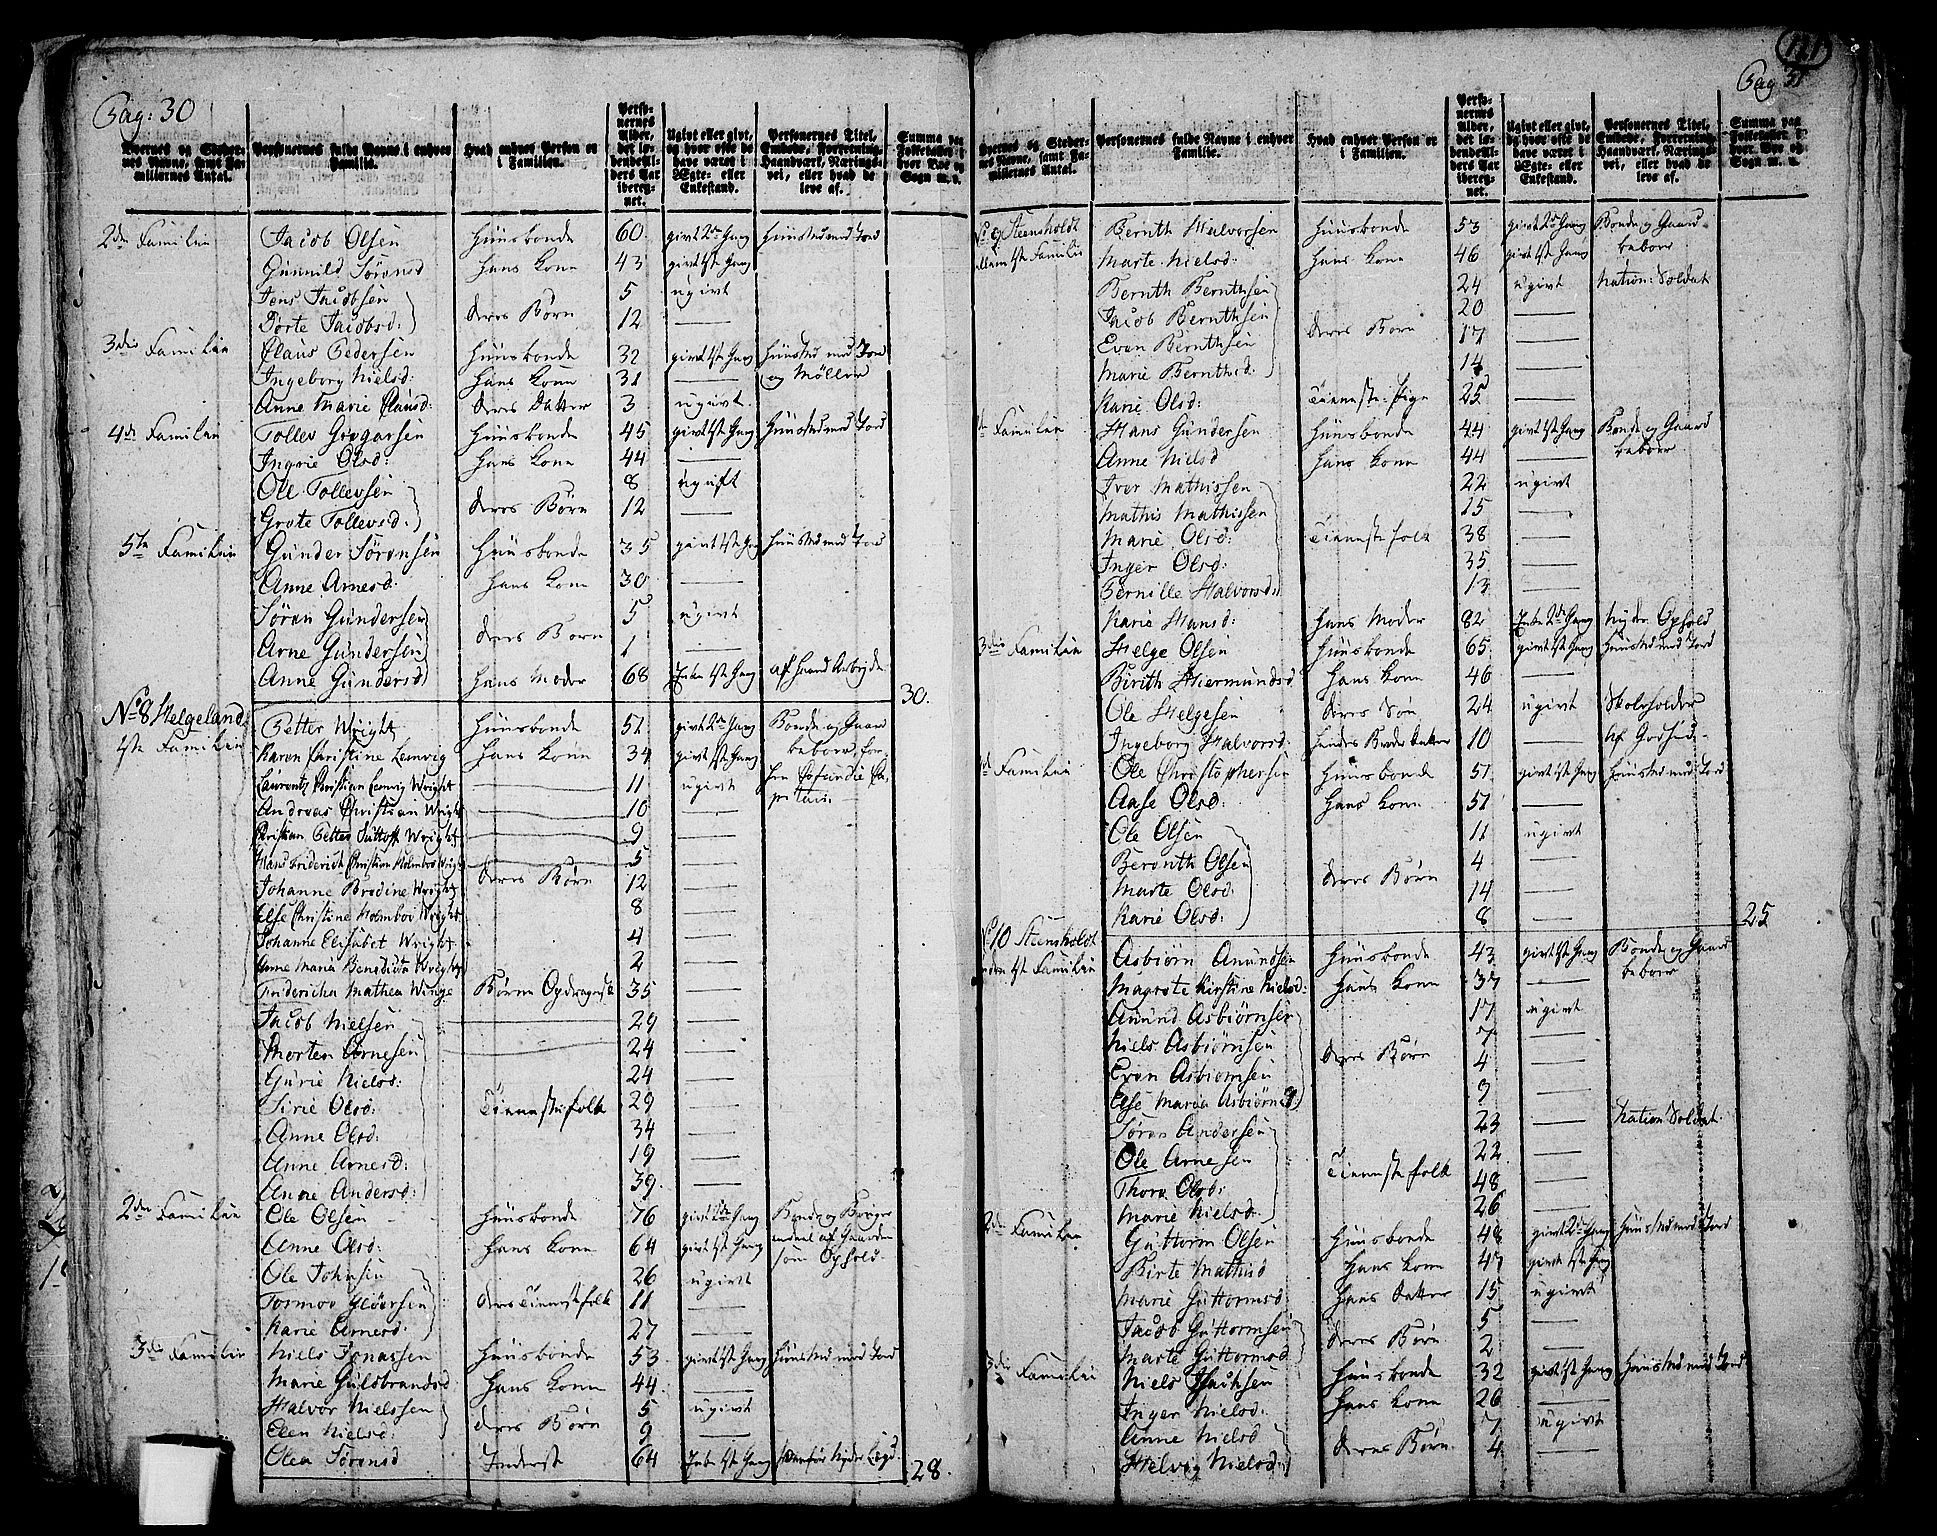 Pag: 30
Personernes fulde Navne i enhver Familie.
Hvad enhver Person er i Familien.
Personernes Alder, det løbende Alders Aar iberegnet.
Ugivt eller givt, og hvor ofte de have været i Ægte- eller Enkestand.
Personernes Titel, Embede, Forretning, Haandværk, Næringsvei, eller hvad de leve af.
2den Familie Jacob Olsen Huusbonde 60 givt 2de Gang Huusmd med Jord
Gunnild Sørensd hans Kone 43 givt 1ste Gang
Jens Jacobsen 5 ugivt
Dorte Jacobsd: deres Børn 12
3die Familie Claus Pedersen Huusbonde 32 givt 1ste Gang Huusmd med Jord
Ingeborg Nielsd: hans Kone 31 og Møller
Anne Marie Clausd: deres Datter 3 ugivt
4de Familie Tollev Gregarsen Huusbonde 45 givt 1ste Gang Huusmd med Jord
Ingrie Olsd: hans Kone 44
Ole Tollevsen 8 ugift
Grete Tollevsd: deres Børn 12
5te Familie Gunder Sørensen Huusbonde 35 givt 1ste Gang Huusmd med Jord
Anne Arnesd: hans Kone 30
Søren Gundersen 5 ugivt
Arne Gundersen deres Børn 1
Anne Gundersd hans Moder 68 Enke 1ste Gang af Haand Arbeyde
30.
No 8 Helgeland Petter Wright Huusbonde 51 givt 2de Gang Bonde og Gaard
1ste Familie Karen Christine Lemvig hans Kone 34 givt 1ste Gang beboer
Laurentz Christian Lemvig Wright 11 ugivt
Andreas Christian Wright 10
Christian Petter Wright 9
Hans Friderich Christian Holmboe Wright 5
Johanne Brodine Wright deres Børn 12
Else Christine Holmboe Wright 8
Johanne Elisabet Wright 4
Anne Maria Benedicta Wright 2
Fridericha Mathea Winge Børne Opdragerske 35
Jacob Nielsen 29
Morten Arnesen 24
Gurie Nielsd: 24
Sirie Olsd: Tienestefolk 29
Anne Olsd: 34
Anne Arnesd: 19
Anne Andersd: 39
2den Familie Ole Olsen Huusbonde 76 givt 2de Gang Bonde og Bruger
Anne Olsd: hans Kone 64 givt 1ste Gang endeel af Gaarden
Ole Johnsen 26 ugivt som Ophold
Tormor Gloersen deres Tienestfolk 11
Karie Arnesd: 27
3die Familie Niels Jonassen Huusbonde 53 givt 1ste Gang Huusmd med Jord
Marie Gulbrandsd hans Kone 44
Halvor Nielssen 5 ugivt
Elen Nielsd: deres Børn 9
Olea Sørensd Inderste 64 Enke 1ste Gang
28.
121
Pag 31
Personernes fulde Navne i enhver Familie.
Hvad enhver Person er i Familien.
Personernes Alder, det løbende Alders Aar iberegnet.
Ugivt eller givt, og hvor ofte de have været i Ægte- eller Enkestand.
Personernes Titel, Embede, Forretning, Haandværk, Næringsvei, eller hvad de leve af.
No 9 Steensholdt Bernth Halvorsen Huusbonde 53 givt 2de Gang Bonde og Gaard
1ste Familie Marte Nielsd: hans Kone 46 givt 1ste Gang beboer
Bernth Bernthsen 24 ugivt Nation: Soldat
Jacob Bernthsen 20
Even Bernthsen deres Børn 17
Marie Bernthsd: 14
Karie Olsd: Tieneste Pige 25
Familie Hans Gundersen Huusbonde 44 givt 1ste Gang Bonde og Gaard
Anne Nielsd hans Kone 44 beboer
Iver Mathissen 22 ugivt
Mathis Mathissen 15
Marie Olsd: Tienestefolk 38
Inger Olsd: 35
Pernille Halvorsd: 13
Karie Hansd: hans Moder 82 Enke 2de Gang Nyder Ophold
3die Familie Helge Olsen Huusbonde 65 givt 1ste Gang Huusmd med Jord
Birith Hiermundsd hans Kone 46
Ole Helgesen deres Søn 24 ugivt Skoleholder
Ingeborg Halvorsd: hendes Broder Datter 10
Familie Ole Christophersen Huusbonde 51 givt 1ste Gang Huusmd med Jord
Aase Olsd: hans Kone 51
Ole Olsen 11 ugivt
Beronth Olsen 4
Marte Olsd: deres Børn 14
Karie Olsd: 8
25
No 10 Steensholdt Asbiørn Amundsen Huusbonde 43 givt 1ste Gang Bonde og Gaard
1ste Familie Magrete Kirstine Nielsd: hans Kone 37 beboer
Amund Asbiørnsen 17 ugivt
Niels Asbiørnsen 7
Even Asbiørnsen deres Børn 4
Else Maria Asbiørnsd: 9
Søren Andersen 23 Nation: Soldat
Ole Arnesen 22
Thore Olsd: Tienestefolk 48
Marie Nielsd: 26
2den Familie Guttorm Olsen Huusbonde 48 givt 2de Gang Huusmd med Jord
Birte Mathisd hans Kone 47 givt 1ste Gang
Marie Guttormsd: hans Datter 15 ugivt
Jacob Guttormsen 5
Marte Guttormsd deres Børn 2
3die Familie Niels Isachsen Huusbonde 32 givt 1ste Gang Huusmd med Jord
Inger Nielsd: hans Kone 26
Anne Nielsd 7 ugivt
Helvig Nielsd: deres Børn 4